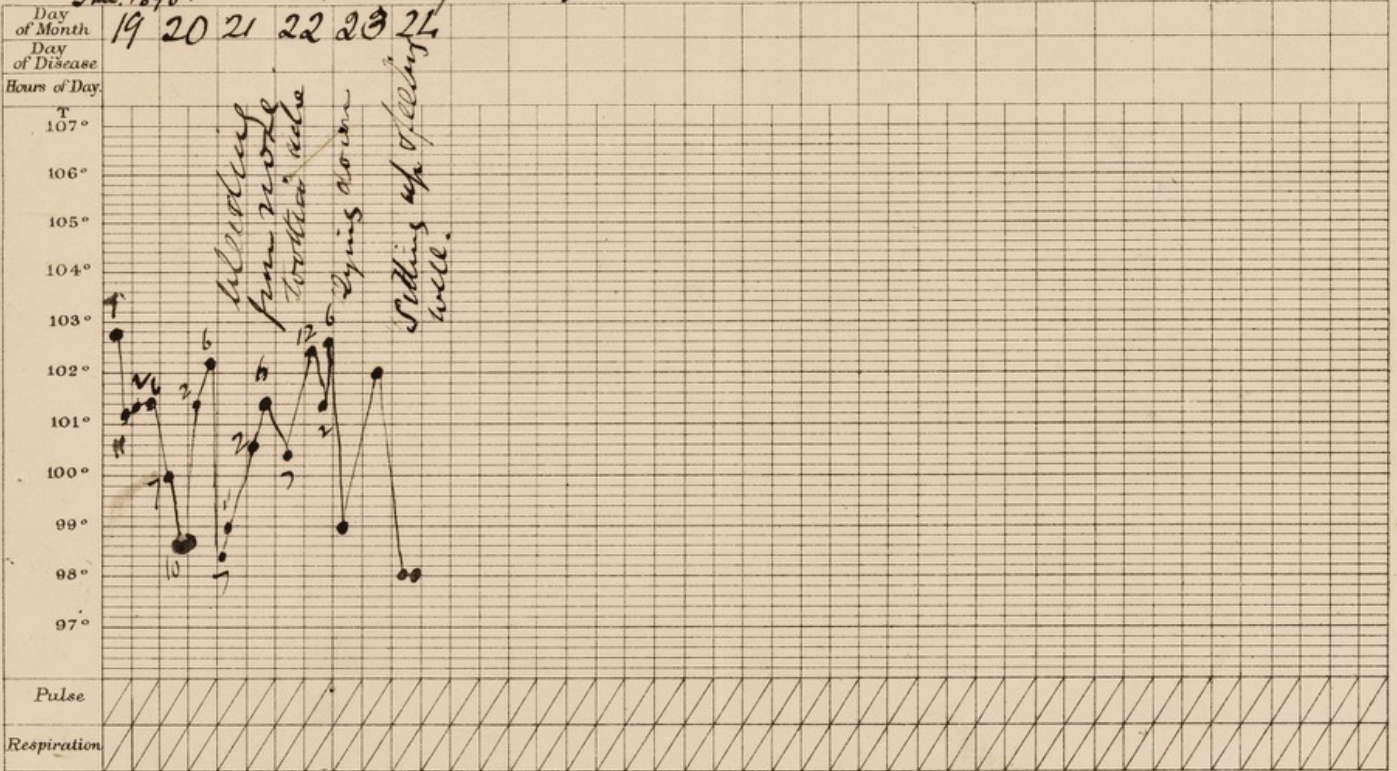 Day of Month 19 20 21 22 23 24
Day of Disease
Hours of Day.
T
107°
106°
105°
104°
103°
102°
101°
100°
99°
98°
97°
bleeding
from nose
Lying down
Sitting up & feeling
well.
4
11
2 6
7
10
2
6
7
2
7
12
2
6
Pulse
Respiration